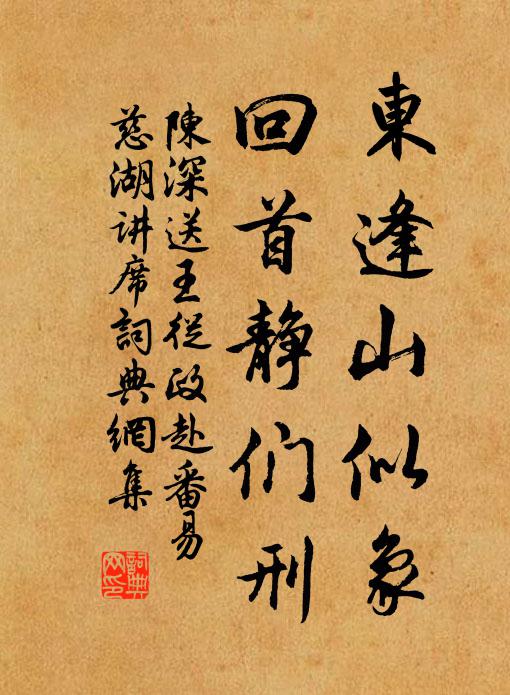 東逢山似象
回首静们刑
陳深送王從政赴番易
慈湖讲席詞典網集
詞典網印